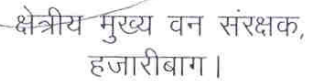 क्षेत्रीय मुख्य वन संरक्षक,
हजारीबाग।